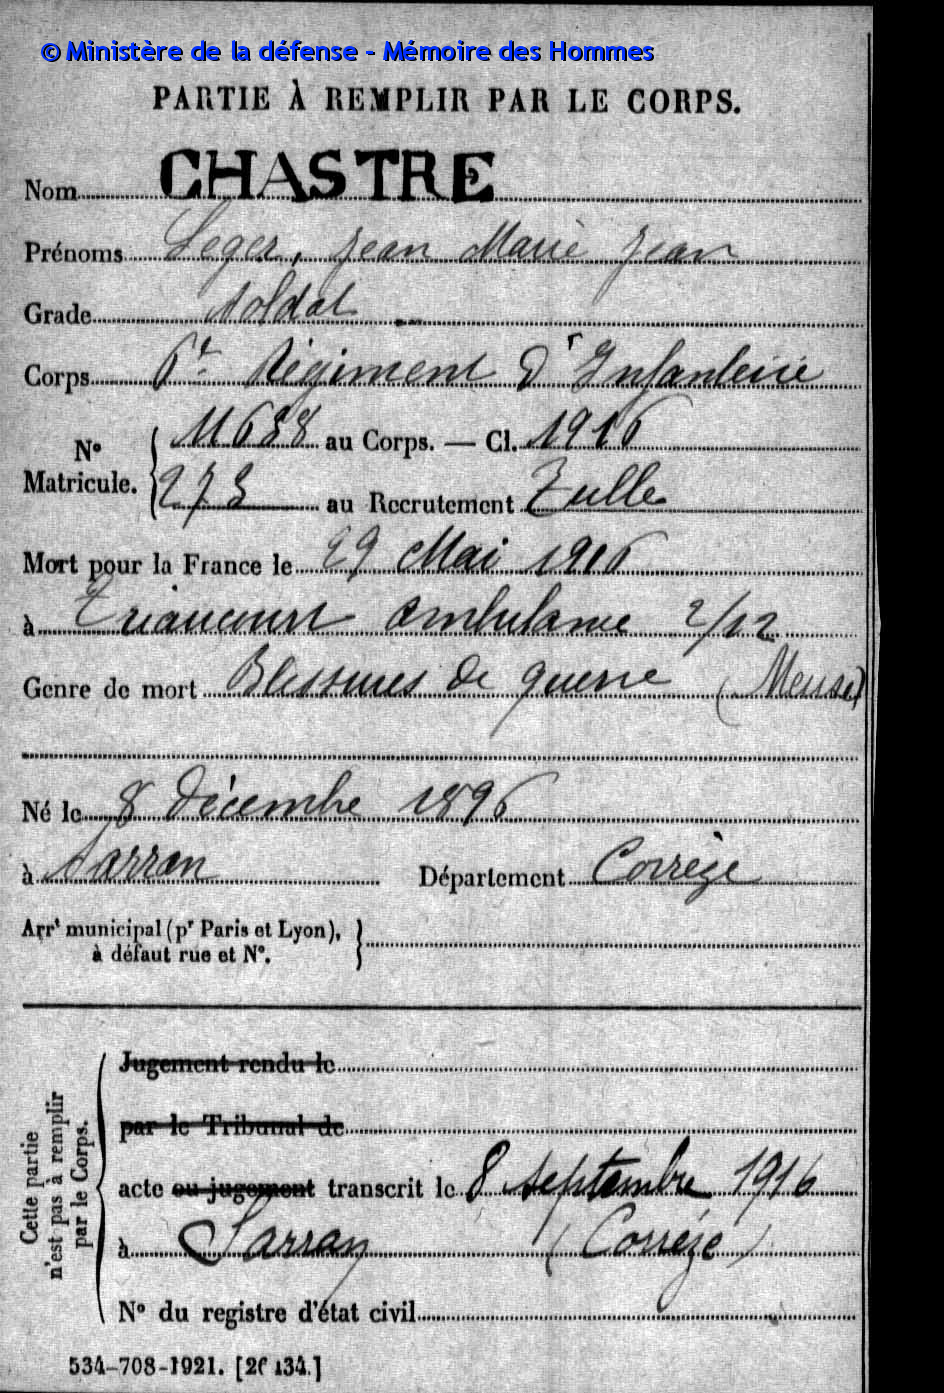 © Ministère de la défense - Mémoire des Hommes
PARTIE À REMPLIR PAR LE CORPS.
Nom CHASTRE
Prénoms Leger, Jean Marie Jean
Grade Soldat
Corps 6e Régiment d'Infanterie
No Matricule. 11688 au Corps. — Cl. 1916
273 au Recrutement Tulle
Mort pour la France le 29 Mai 1916
à Triaucourt ambulance 2/12
Genre de mort Blessures de guerre (Meuse)
Né le 8 décembre 1896
à Sarran Département Corrèze
Arrt municipal (pr Paris et Lyon),
à défaut rue et No.
Cette partie
n'est pas à remplir
par le Corps.
Jugement rendu le
par le Tribunal de
acte ou jugement transcrit le 8 septembre 1916
à Sarran (Corrèze)
No du registre d'état civil
534-708-1921.